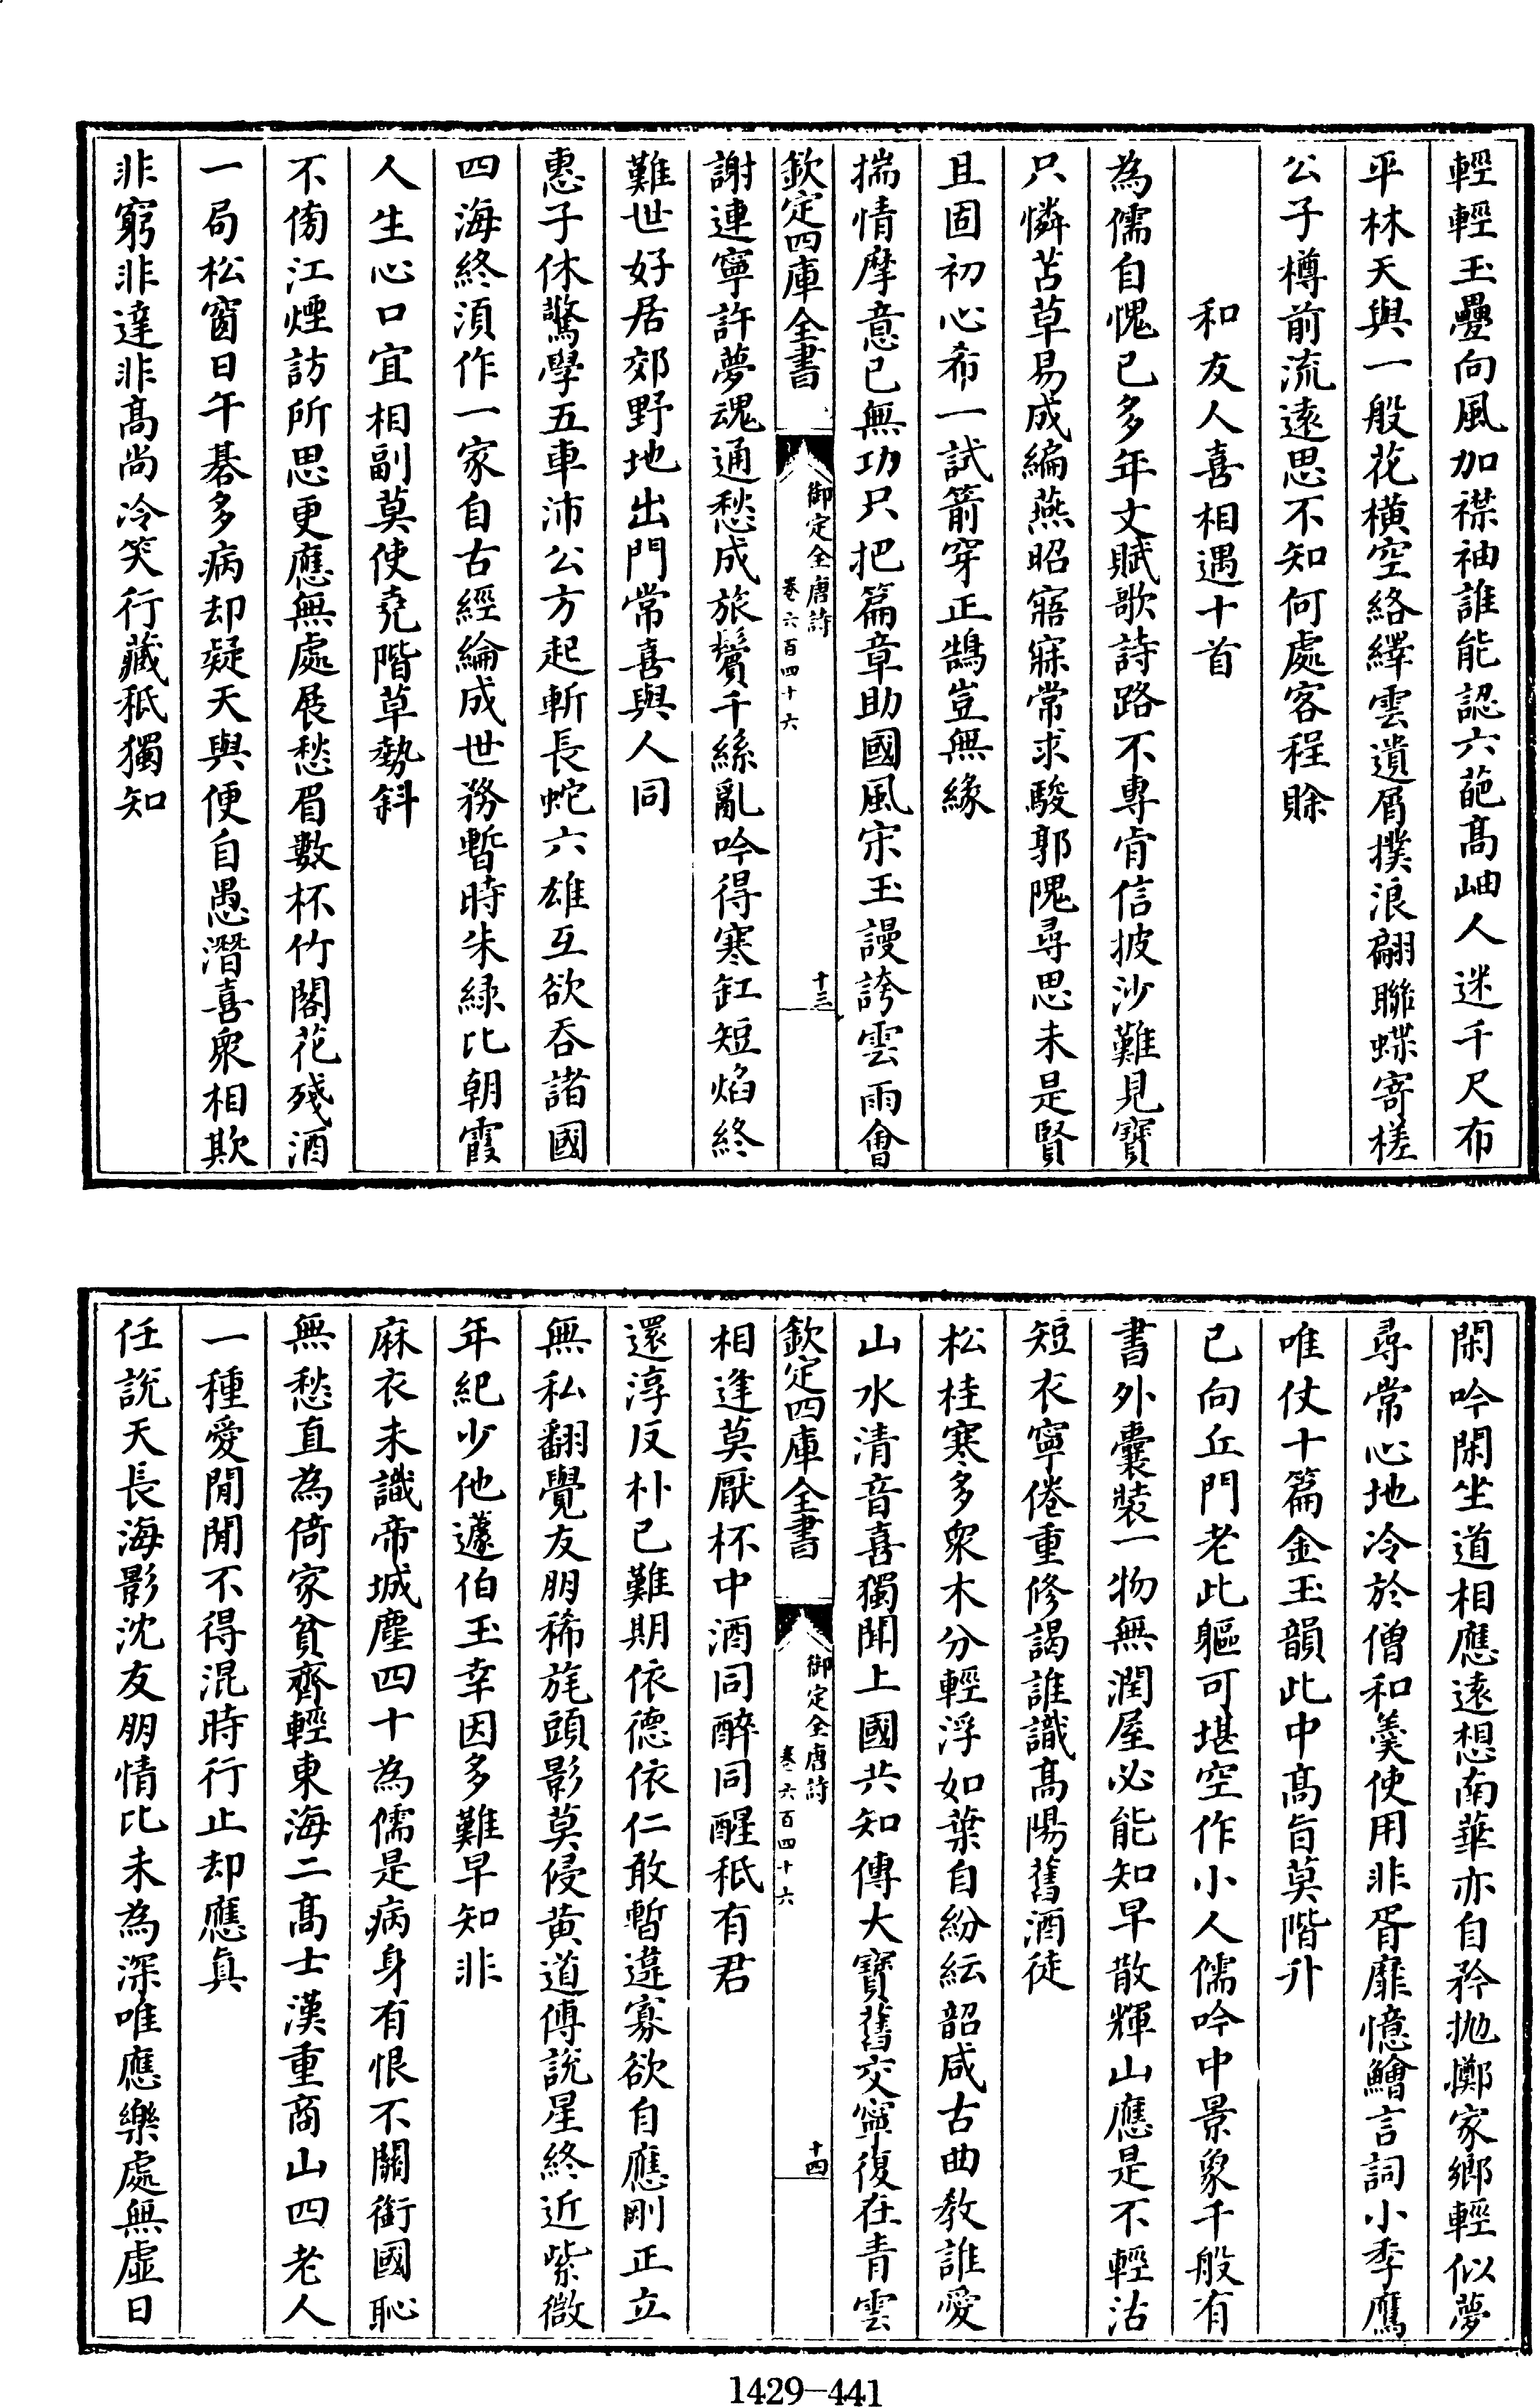 輕輕玉疊向風加襟袖誰能認六葩髙岫人迷千尺布
平林天與一般花橫空絡繹雲遺屑撲浪翩聯蝶寄槎
公子樽前流遠思不知何處客程賒
和友人喜相遇十首
為儒自愧已多年文賦歌詩路不專肯信披沙難見寳
只憐苫草易成編燕昭寤寐常求駿郭隗尋思未是賢
且固初心希一試箭穿正鵠豈無緣
揣情摩意已無功只把篇章助國風宋玉謾誇雲雨會
欽定四庫全書
御定全唐詩
卷六百四十六
十三
謝連寧許夢魂通愁成旅鬢千絲亂吟得寒缸短焰終
難世好居郊野地出門常喜與人同
惠子休驚學五車沛公方起斬長蛇六雄互欲吞諸國
四海終須作一家自古經綸成世務暫時朱緑比朝霞
人生心口宜相副莫使堯階草勢斜
不傍江煙訪所思更應無處展愁眉數杯竹閣花殘酒
一局松窗日午棊多病却疑天與便自愚潛喜衆相欺
非窮非達非髙尚冷笑行藏秖獨知
閑吟閑坐道相應遠想南華亦自矜抛擲家鄉輕似夢
尋常心地冷於僧和羮使用非胥靡憶鱠言詞小季鷹
唯仗十篇金玉韻此中髙旨莫階升
已向丘門老此軀可堪空作小人儒吟中景象千般有
書外囊裝一物無潤屋必能知早散輝山應是不輕沽
短衣寧倦重修謁誰識髙陽舊酒徒
松桂寒多衆木分輕浮如葉自紛紜韶咸古曲教誰愛
山水清音喜獨聞上國共知傳大寶舊交寧復在青雲
欽定四庫全書
御定全唐詩
卷六百四十六
十四
相逢莫厭杯中酒同醉同醒秖有君
還淳反朴已難期依德依仁敢暫違寡欲自應剛正立
無私翻覺友朋稀旄頭影莫侵黄道傅說星終近紫微
年紀少他蘧伯玉幸因多難早知非
麻衣未識帝城塵四十為儒是病身有恨不關銜國恥
無愁直為倚家貧齊輕東海二髙士漢重商山四老人
一種愛閒閒不得混時行止却應真
任說天長海影沈友朋情比未為深唯應樂處無虛日
1429-441